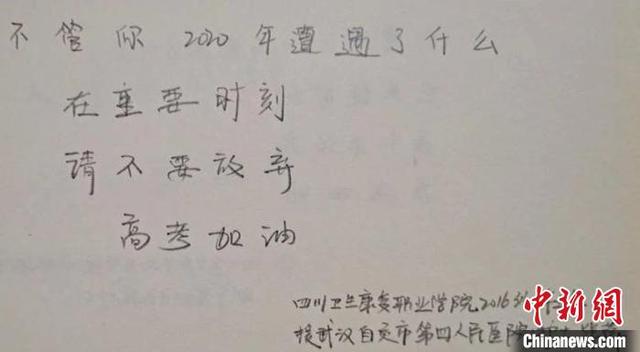 不管你2020年遭遇了什么
在重要时刻
请不要放弃
高考加油
四川卫生康复职业学院2016
援武汉自贡市第四人民医院
中新网
Chinanews.com